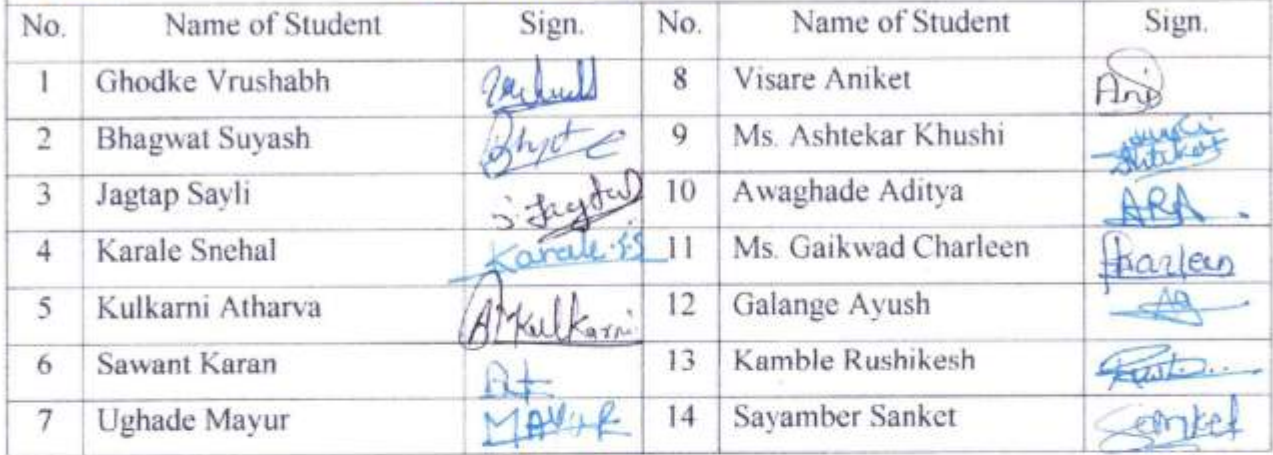 No. Name of Student Sign. No. Name of Student Sign.
1 Ghodke Vrushabh 8 Visare Aniket Ani
2 Bhagwat Suyash 9 Ms. Ashtekar Khushi
3 Jagtap Sayli S Jagtap 10 Awaghade Aditya ARA
4 Karale Snehal Karale S.S 11 Ms. Gaikwad Charleen Charleen
5 Kulkarni Atharva A Kulkarni 12 Galange Ayush
6 Sawant Karan 13 Kamble Rushikesh
7 Ughade Mayur MAYUR 14 Sayamber Sanket Sanket